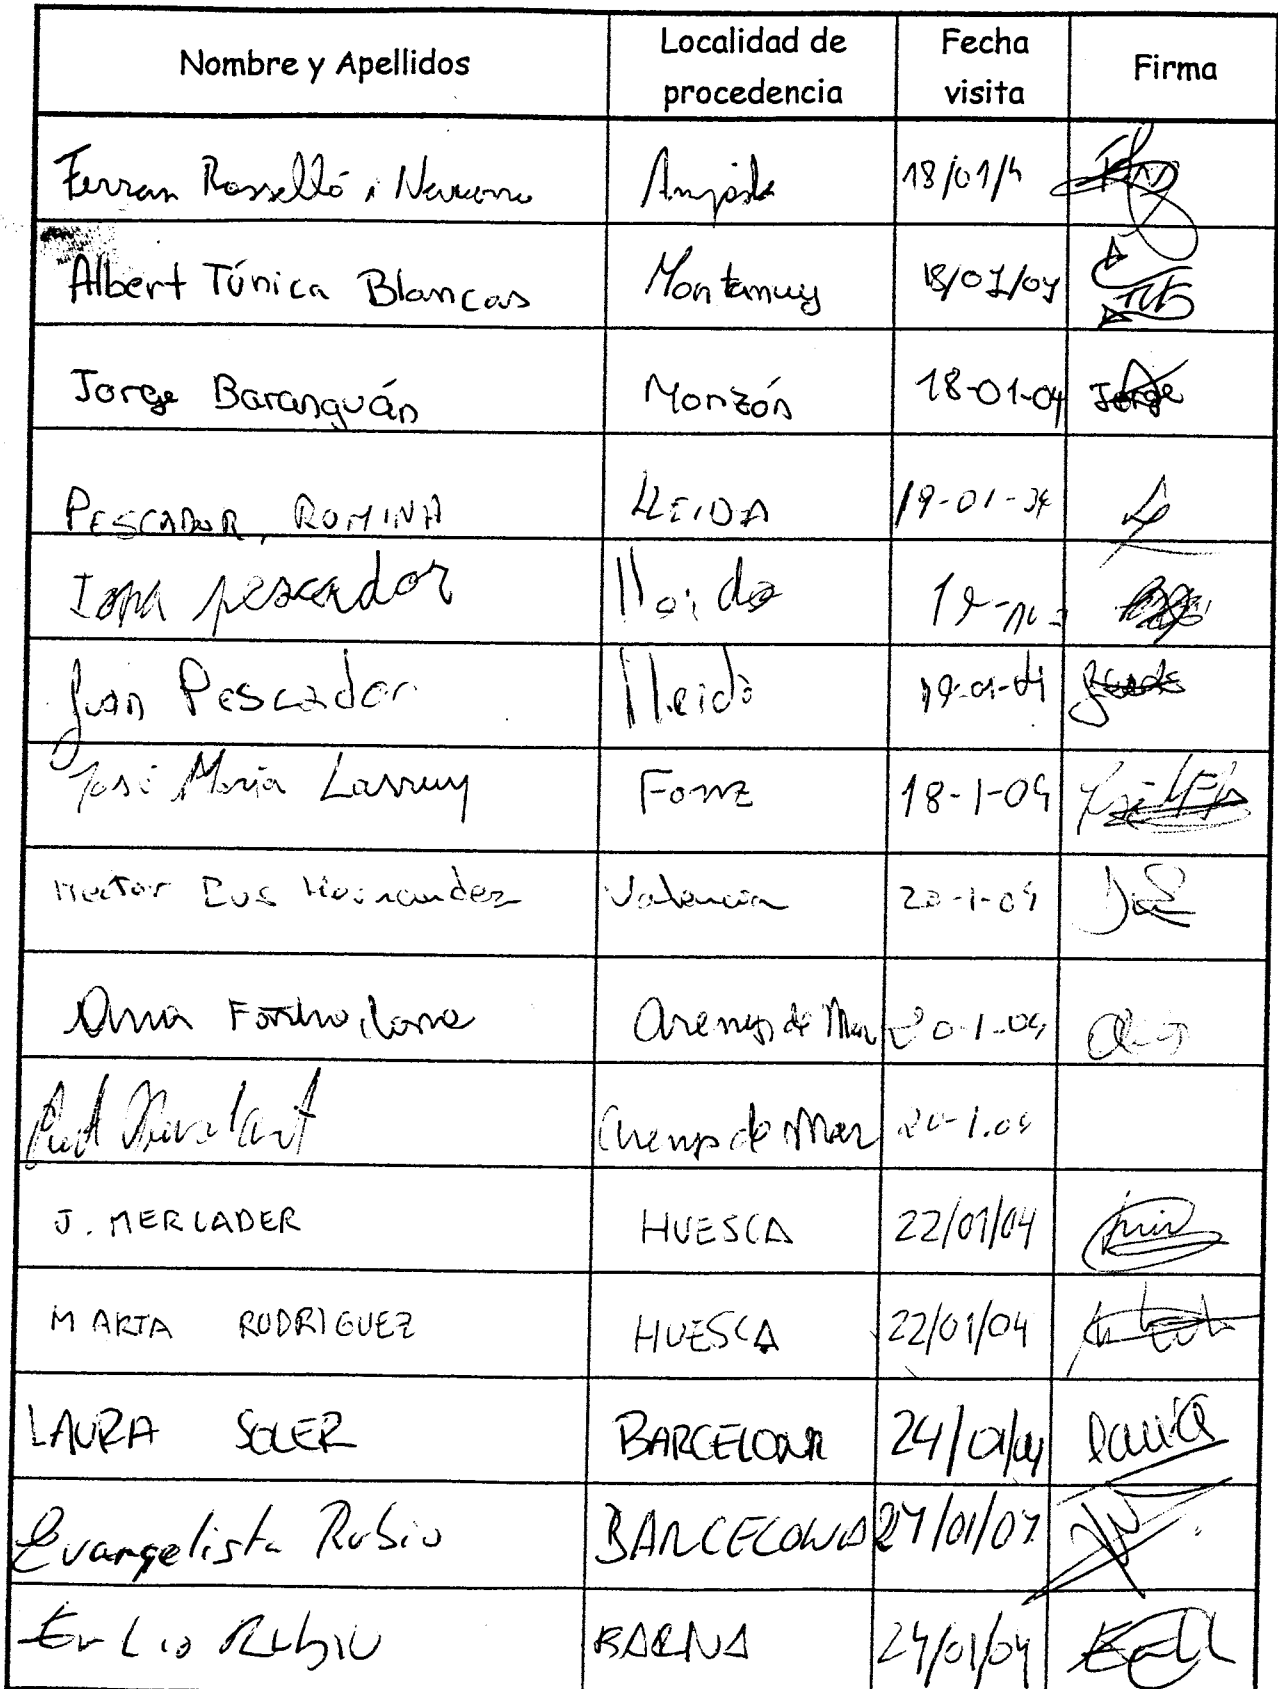 Nombre y Apellidos Localidad de procedencia Fecha visita Firma
Ferran Rosselló i Navarro 18/01/4
Albert Túnica Blancas Montanuy 18/01/04
Jorge Baranguán Monzón 18-01-04 Jorge
PESCADOR, ROMINA LLEIDA 19-01-04
pescador lleida 19-
Juan Pescador lleida 19-01-04
José María Larruy Fonz 18-1-04
Hector Hernandez Valencia 20-1-04
Anna Arenys de Mar 20-1-04
Arenys de Mar 20-1.04
J. MERCADER HUESCA 22/01/04
MARTA RODRIGUEZ HUESCA 22/01/04
LAURA SOLER BARCELONA 24/01/04 Laura
Evangelista Rubio BARCELONA 24/01/04
Emilio Rubio BARNA 24/01/04